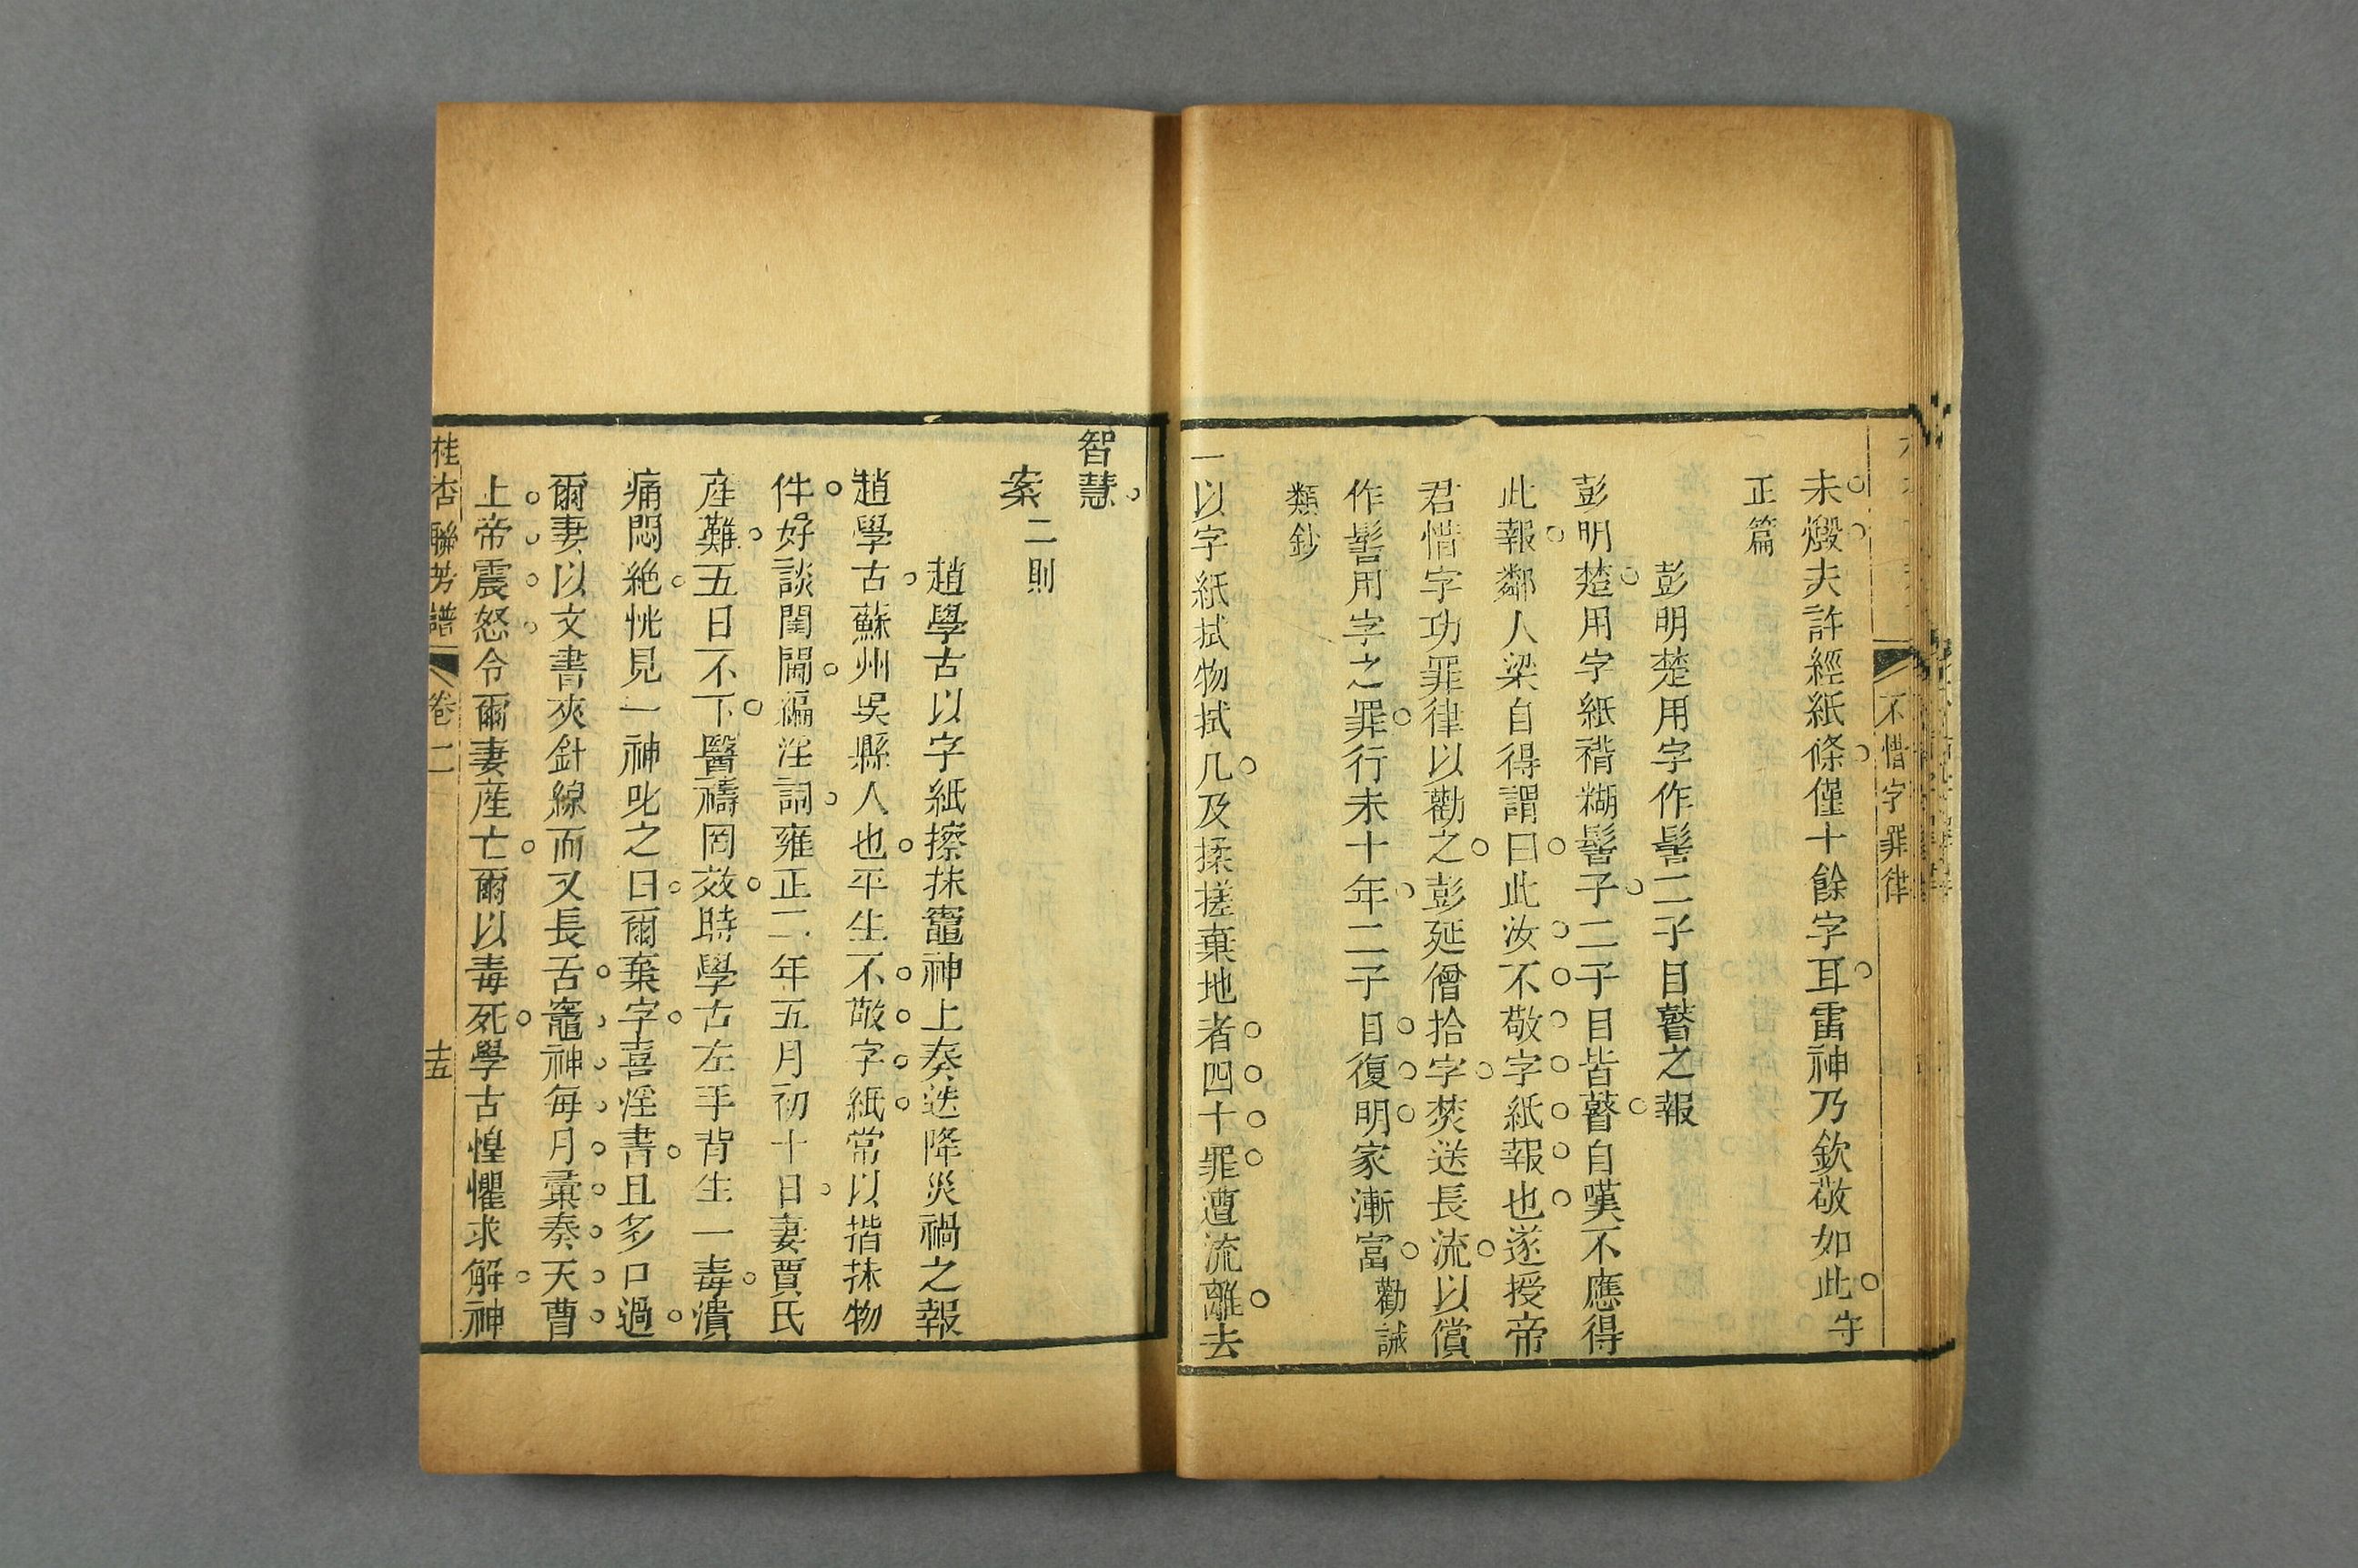 不惜字罪律
未燬夫許經紙條僅十餘字耳雷神乃欽敬如此守
正篇
彭明楚用字作髻二子目瞽之報
彭明楚用字紙褙糊髻子二子目皆瞽自嘆不應得
此報鄰人梁自得謂曰此汝不敬字紙報也遂授帝
君惜字功罪律以勸之彭延僧拾字焚送長流以償
作髻用字之罪行未十年二子目復明家漸富勸誡
類鈔
一以字紙拭物拭几及揉搓棄地者四十罪遭流離去
智慧
案二則
趙學古以字紙擦抹竈神上奏迭降災禍之報
趙學古蘇州吳縣人也平生不敬字紙常以揩抹物
件好談閨閫徧淫詞雍正二年五月初十日妻賈氏
產難五日不下醫禱罔效時學古左手背生一毒潰
痛悶絶恍見一神叱之曰爾棄字喜淫書且多口過
爾妻以文書夾針線而又長舌竈神每月彙奏天曹
上帝震怒令爾妻產亡爾以毒死學古惶懼求解神
桂杏聯芳譜 卷二 十五